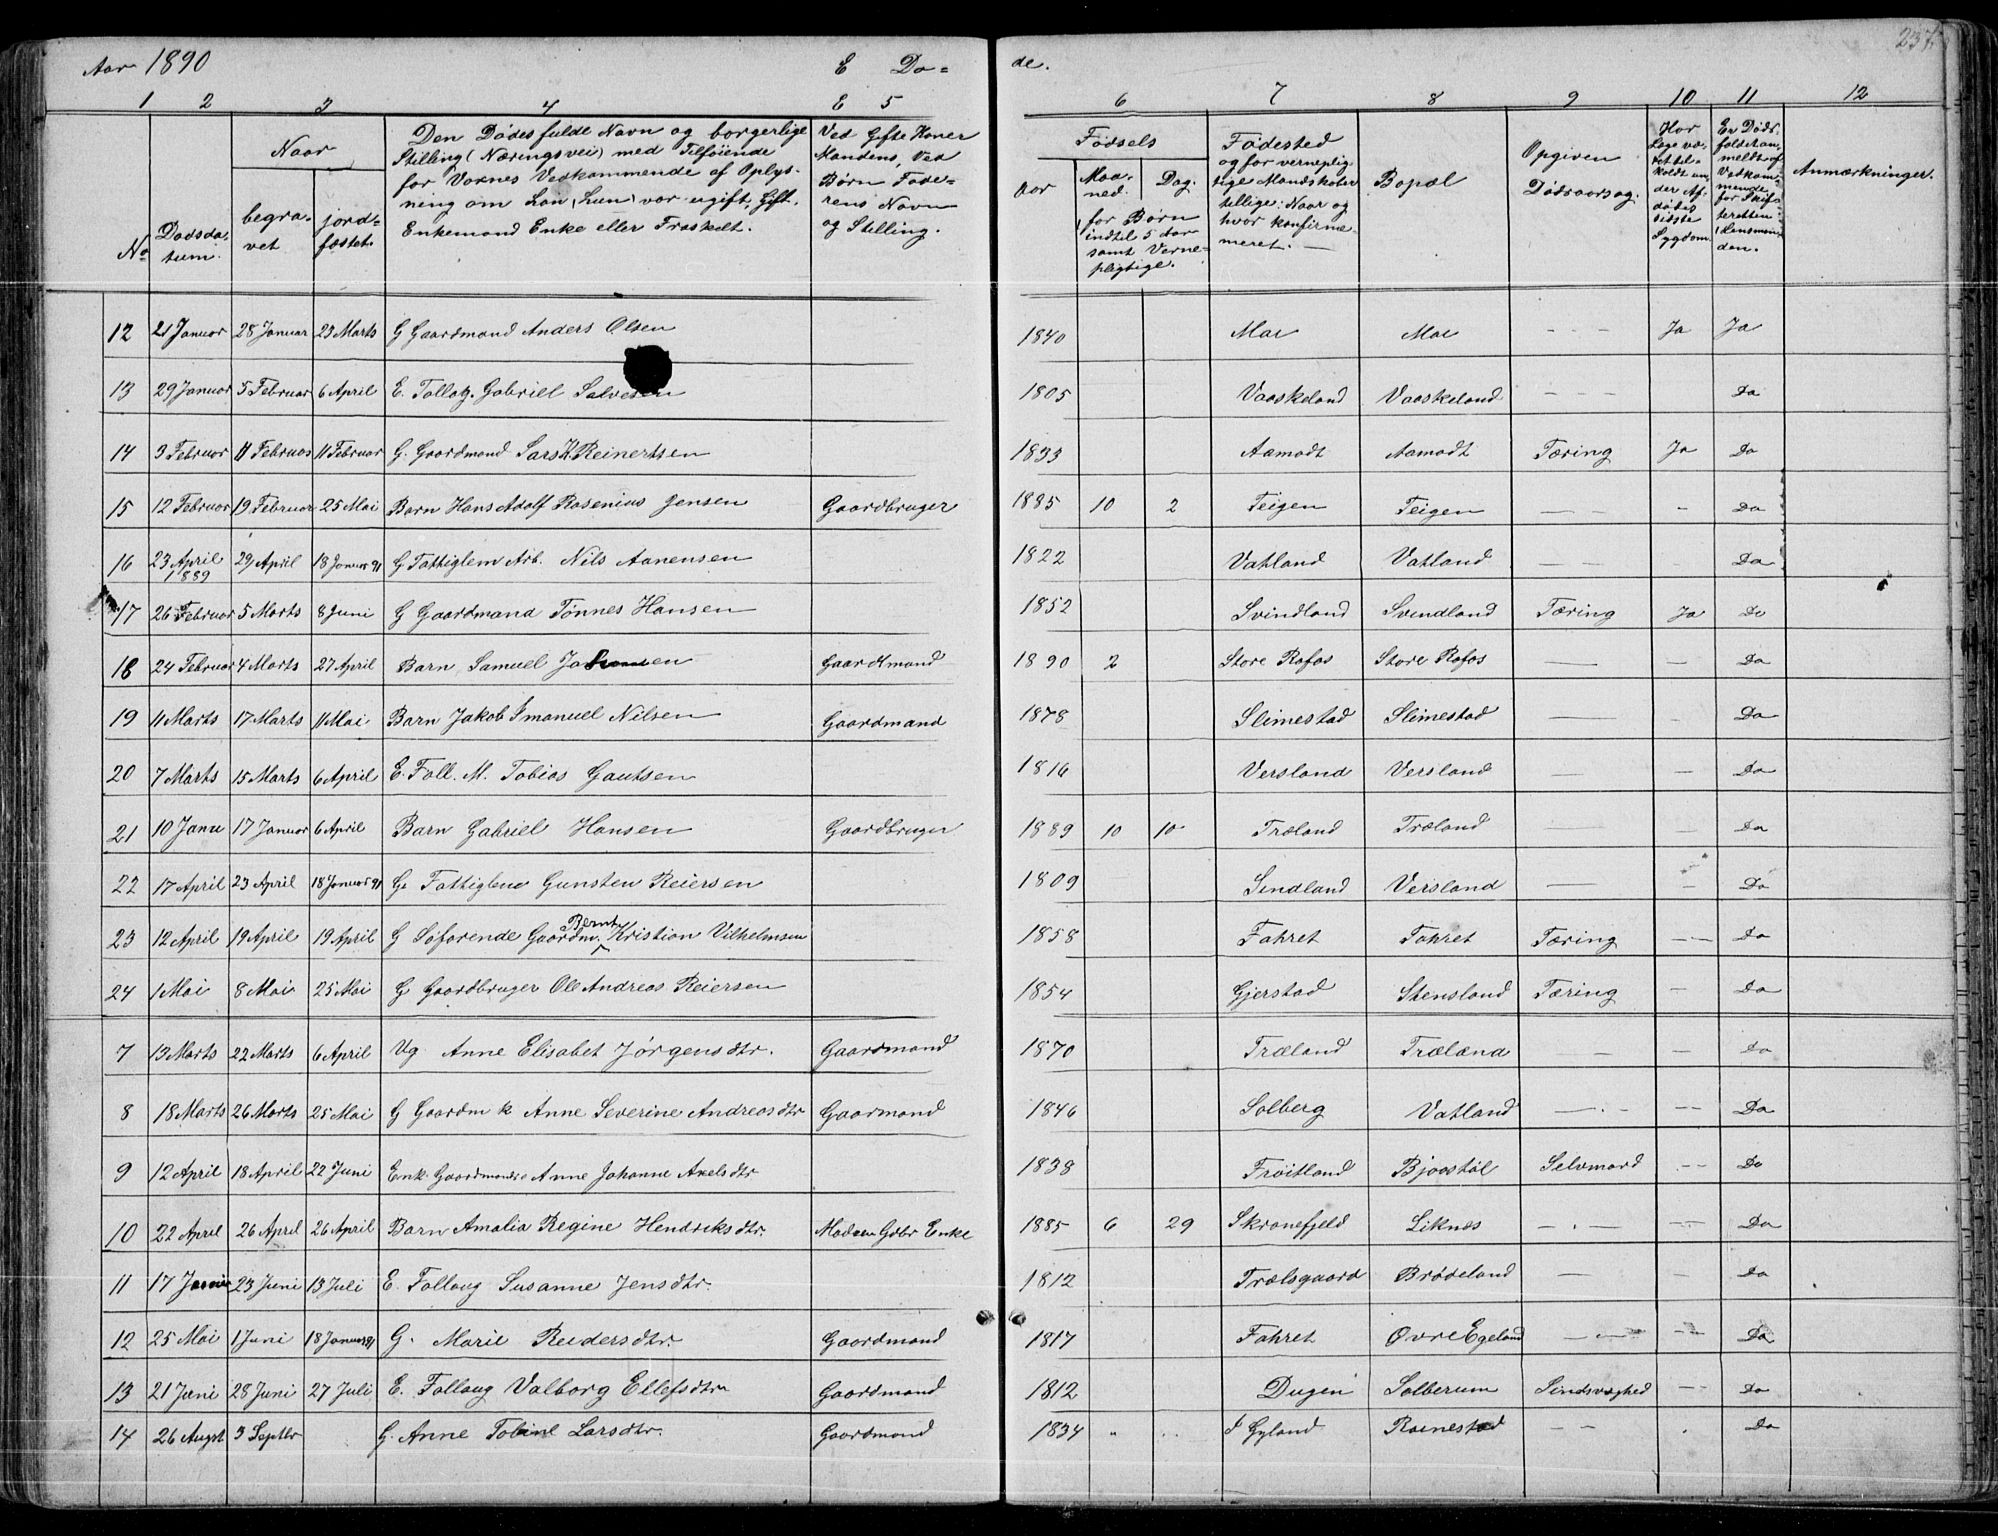 237.
Aar 1890 E Dø= de.
1 2 3 4 E 5 6 7 8 9 10 11 12
No
Dødsda-
tum.
Naar
begra-
vet
jord-
fæstet.
Den Dødes fulde Navn og borgerlige
Stilling (Næringsvei) med Tilføiende
for Voxnes Vedkommende af Oplys-
ning om han (hun) var ugift, Gift,
Enkemand Enke eller Fraskilt.
Ved Gifte Koner
Mandens, Ved
Børn Fade-
rens Navn
og Stilling.
Fødsels
Aar
Maa-
ned.
Dag.
for Børn
indtil 5 Aar
samt Verne-
pligtige.
Fødested
og for vernepligtige Mandskaber
tillige: Naar og
hvor konfirme-
meret.
Bopæl
Opgiven
Dødsaarsag.
Har
Læge væ-
ret til-
kaldt un-
der Af-
dødes
sidste
Sygdom
Er Døds-
faldet an-
meldt af
Vedkom-
mende
for Skif-
teretten
(Lensman-
den.
Anmærkninger.
12 21 Januar 28 Januar 23 Marts G Gaardmand Anders Olsen 1840 Moi Moi - - - Ja Ja
13 29 Januar 5 Februar 6 April E. Follag. Gabriel Salvesen 1805 Vaaskeland Vaaskeland - - - Do
14 3 Februar 11 Februar 11 Februar G. Gaardmand Lars K Reinertsen 1833 Aamodt Aamodt Tæring Ja Do
15 12 Februar 19 Februar 25 Mai Barn Hans Adolf Rosenius Jensen Gaardbruger 1885 10 2 Teigen Teigen — - Do
16 23 April 1889 29 April 18 Januar 91 G Fattiglem Arb. Nils Aanensen 1822 Vatland Vatland — Do
17 26 Februar 5 Marts 8 Juni G Gaardmand Tønnes Hansen 1852 Svindland Svindland Tæring Ja Do
18 24 Februar 4 Marts 27 April Barn Samuel Gaardmand 1890 2 Store Rafos Store Rafos — — Do
19 11 Marts 17 Marts 11 Mai Barn Jakob Imanuel Nilsen Gaardmand 1878 Slimestad Slimestad — Do
20 7 Marts 15 Marts 6 April E. Foll. M. Tobias Gautsen 1816 Versland Versland — — Do
21 10 Janu 17 Januar 6 April Barn Gabriel Hansen Gaardbruger 1889 10 10 Træland Træland — — Do
22 17 April 23 April 18 Januar 91 G Fattiglem Gunsten Reiersen 1809 Sindland Versland — — Do
23 12 April 19 April 19 April G Søfarende Gaardm. Bernt Kristian Vilhelmsen 1858 Fahret Fahret Tæring — Do
24 1 Mai 8 Mai 25 Mai G Gaardbruger Ole Andreas Reiersen 1854 Gjerstad Stensland Tæring — Do
7 13 Marts 22 Marts 6 April Ug Anne Elisabet Jørgensdtr. Gaardmand 1870 Træland Træland — — Do
8 18 Marts 26 Marts 25 Mai G Gaardm k Anne Severine Andreasdtr Gaarmand 1846 Solberg Vatland — — Do
9 12 April 18 April 22 Juni Enk. Gaardmands Anne Johanne Axelsdtr 1838 Frøitland Bjostøl Selvmord — Do
10 22 April 26 April 26 April Barn Amalia Regine Hendriksdtr. Gdbr Enke 1885 6 29 Skranefjeld Liknæs — — Do
11 17 Juni 23 Juni 13 Juli E. Follaug Susanne Jensdtr. 1812 Trælsgaard Brødeland — — Do
12 25 Mai 1 Juni 18 Januar 91 G. Marie Reidersdtr. Gaardmand 1817 Fahret Øvre Egeland — — Do
13 21 Juni 28 Juni 27 Juli E. Follaug Valborg Ellefsdtr Gaardmand 1812 Dugen Salberum Sindsvaghed — Do
14 26 Augst 3 Septbr G. Anne Tobine Larsdtr. Gaardmand 1834 " I Gyland Ravnestad — Do